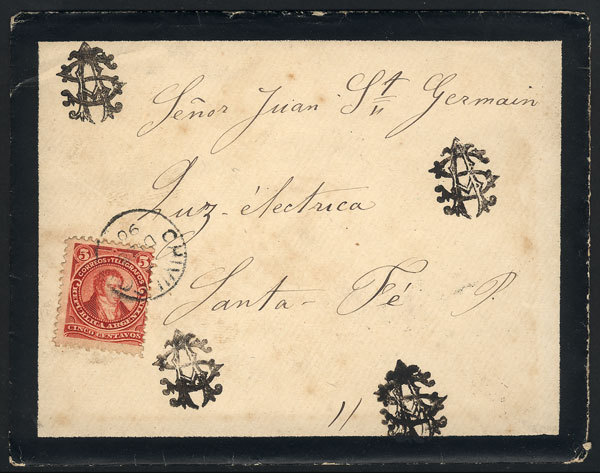 Señor Juan St Germain
Luz-éléctrica
Santa-Fé P.
11
5 5
CORREOS Y TELEGRAFOS
REPUBLICA ARGENTINA
CINCO CENTAVOS
90